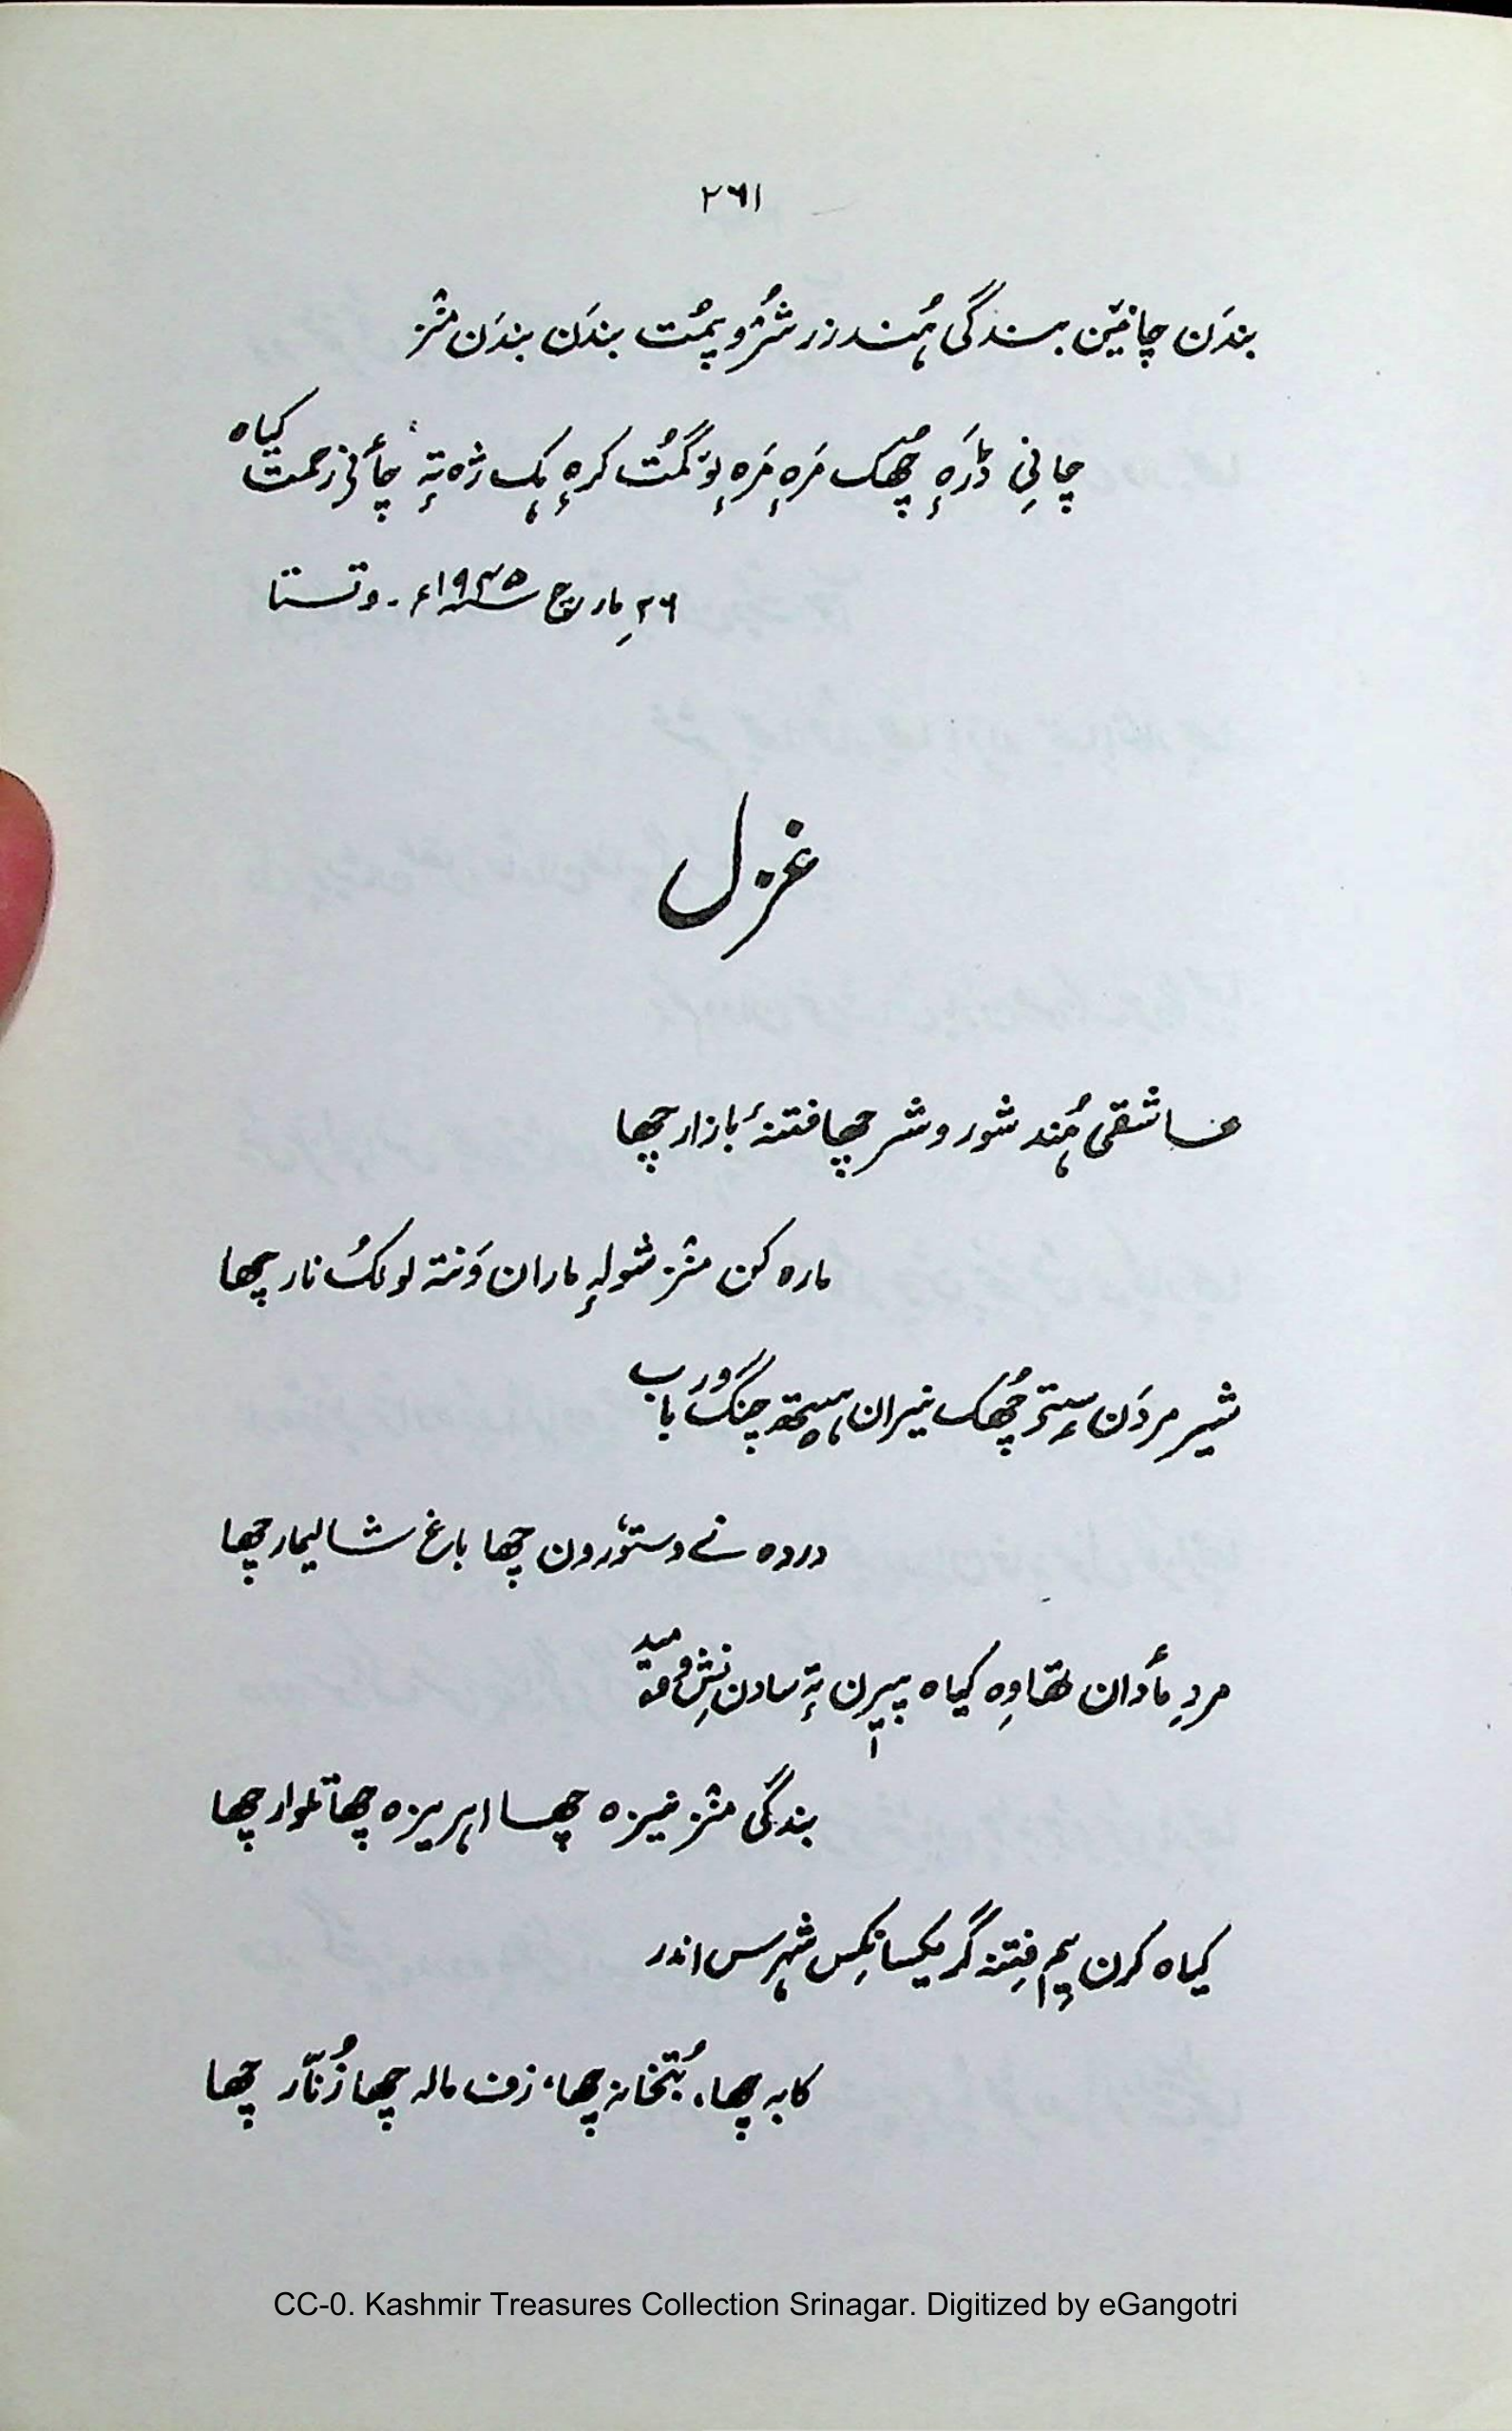 ۲۶۱
بندَن چانیَن بندگی ہُند زر شرُوپمُت بندَن بندَن منٛز
چانِہ ڈرَہٕ چھُک مَرہٕ مَرہٕ لوٚگمُت کرہٕ ہک ژہ تہٕ چٲنی رحمت کیاہ
۲۶ مارچ ۱۹۴۵ء۔ وتستا
غزل
عاشقی ہُند شور و شر چھا فتنۂ بازار چھا
مارہ کن منٛز شولہٕ ماران وَنتہ لولُک نار چھا
شیر مردَن سٟتؠ چھُک نیران ہیتھ چنگ و رباب
دردہ نے دستوٗر ون چھا باغ شالیمار چھا
مردِ مٲدان تھاوِہ کیاہ پیٖرن تہٕ سادن نِش وۄمید
بندگی منٛز نیزہ چھا اہریزہ چھا تلوار چھا
کیاہ کرن یِم فِتنہ گر یکسانکِس شہرس اندر
کابہ چھا، بُتخانہ چھا، زف مالہ چھا زُنّار چھا
CC-0. Kashmir Treasures Collection Srinagar. Digitized by eGangotri